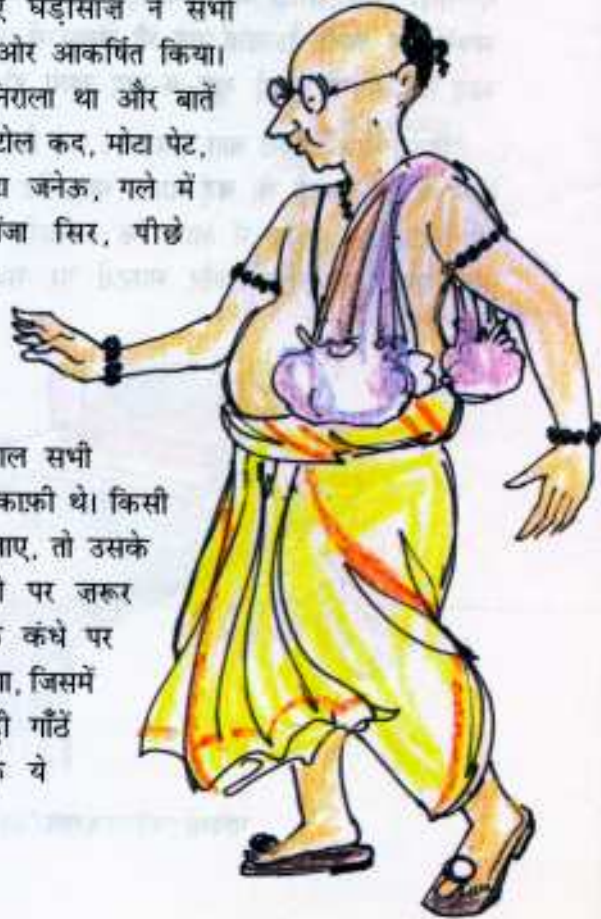 घड़ीसाज़ ने सभी
ओर आकर्षित किया।
निराला था और बातें
डोल कद, मोटा पेट,
जनेऊ, गले में
सिर, पीछे
सभी
काफ़ी थे। किसी
जाए, तो उसके
पर ज़रूर
कंधे पर
जिसमें
गाँठें
ये